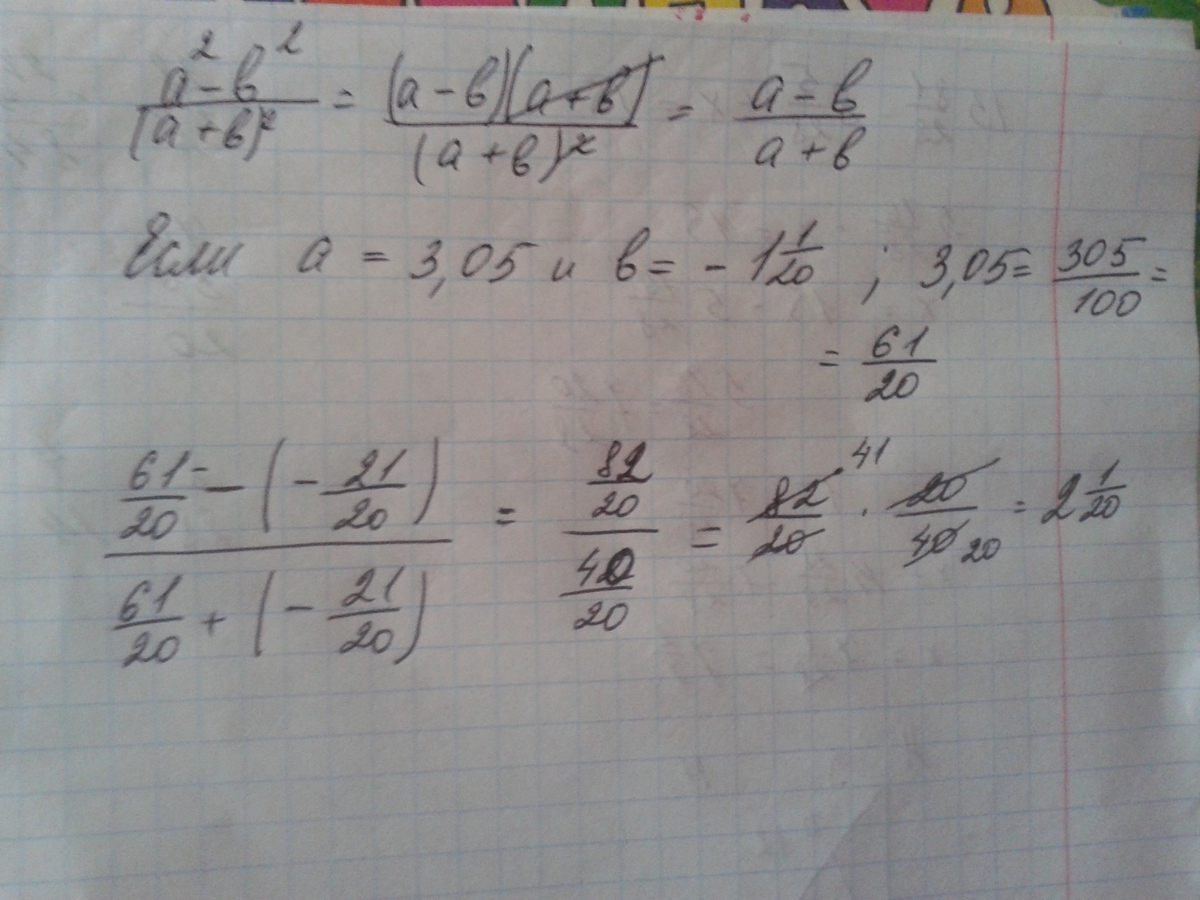 (a² - в²)/(a + в)² = (a - в)(a + в)/(a + в)² = (a - в)/(a + в)
Если a = 3,05 и в = - 1 1/20 ; 3,05 = 305/100 =
= 61/20
(61/20 - (- 21/20))/(61/20 + (- 21/20)) = (82/20)/(40/20) = 82/20 41 · 20/40 20 = 2 1/20